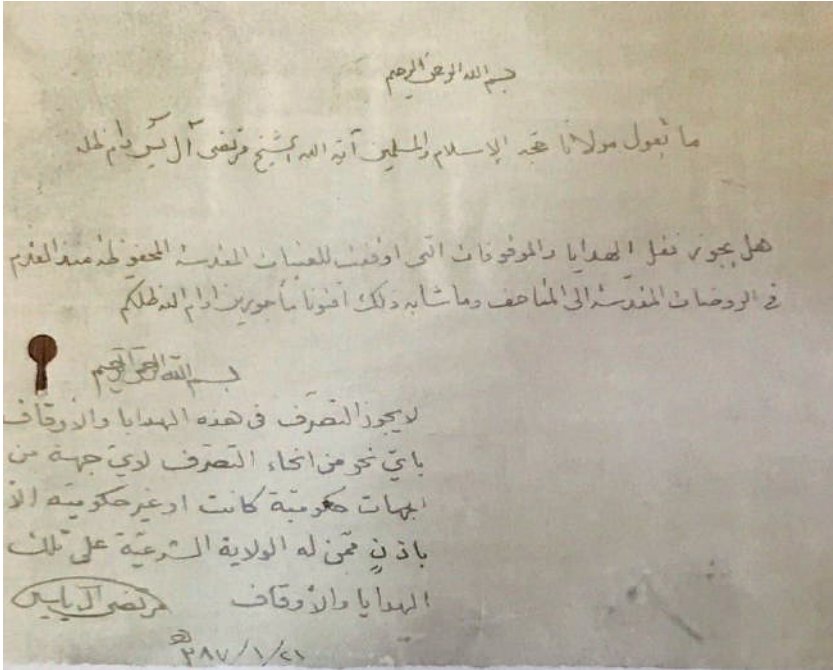 بسم الله الرحمن الرحيم
ما تقول مولانا حجة الإسلام والمسلمين آية الله الشيخ مرتضى آل يس دام ظله
هل يجوز نقل الهدايا والموقوفات التي اوقفت للعتبات المقدسة المحفوظة منذ القدم
في الروضات المقدسة الى المتاحف وما شابه ذلك افتونا مأجورين ادام الله ظلكم
بسم الله الرحمن الرحيم
لا يجوز التصرّف في هذه الهدايا والأوقاف
بايّ نحو من انحاء التصرّف لايّ جهة من
الجهات حكوميّة كانت او غير حكوميّه الاّ
باذنٍ ممّن له الولاية الشرعيّة على تلك
الهدايا والأوقاف
مرتضى آل ياسين
٣٨٧/١/٢١هـ